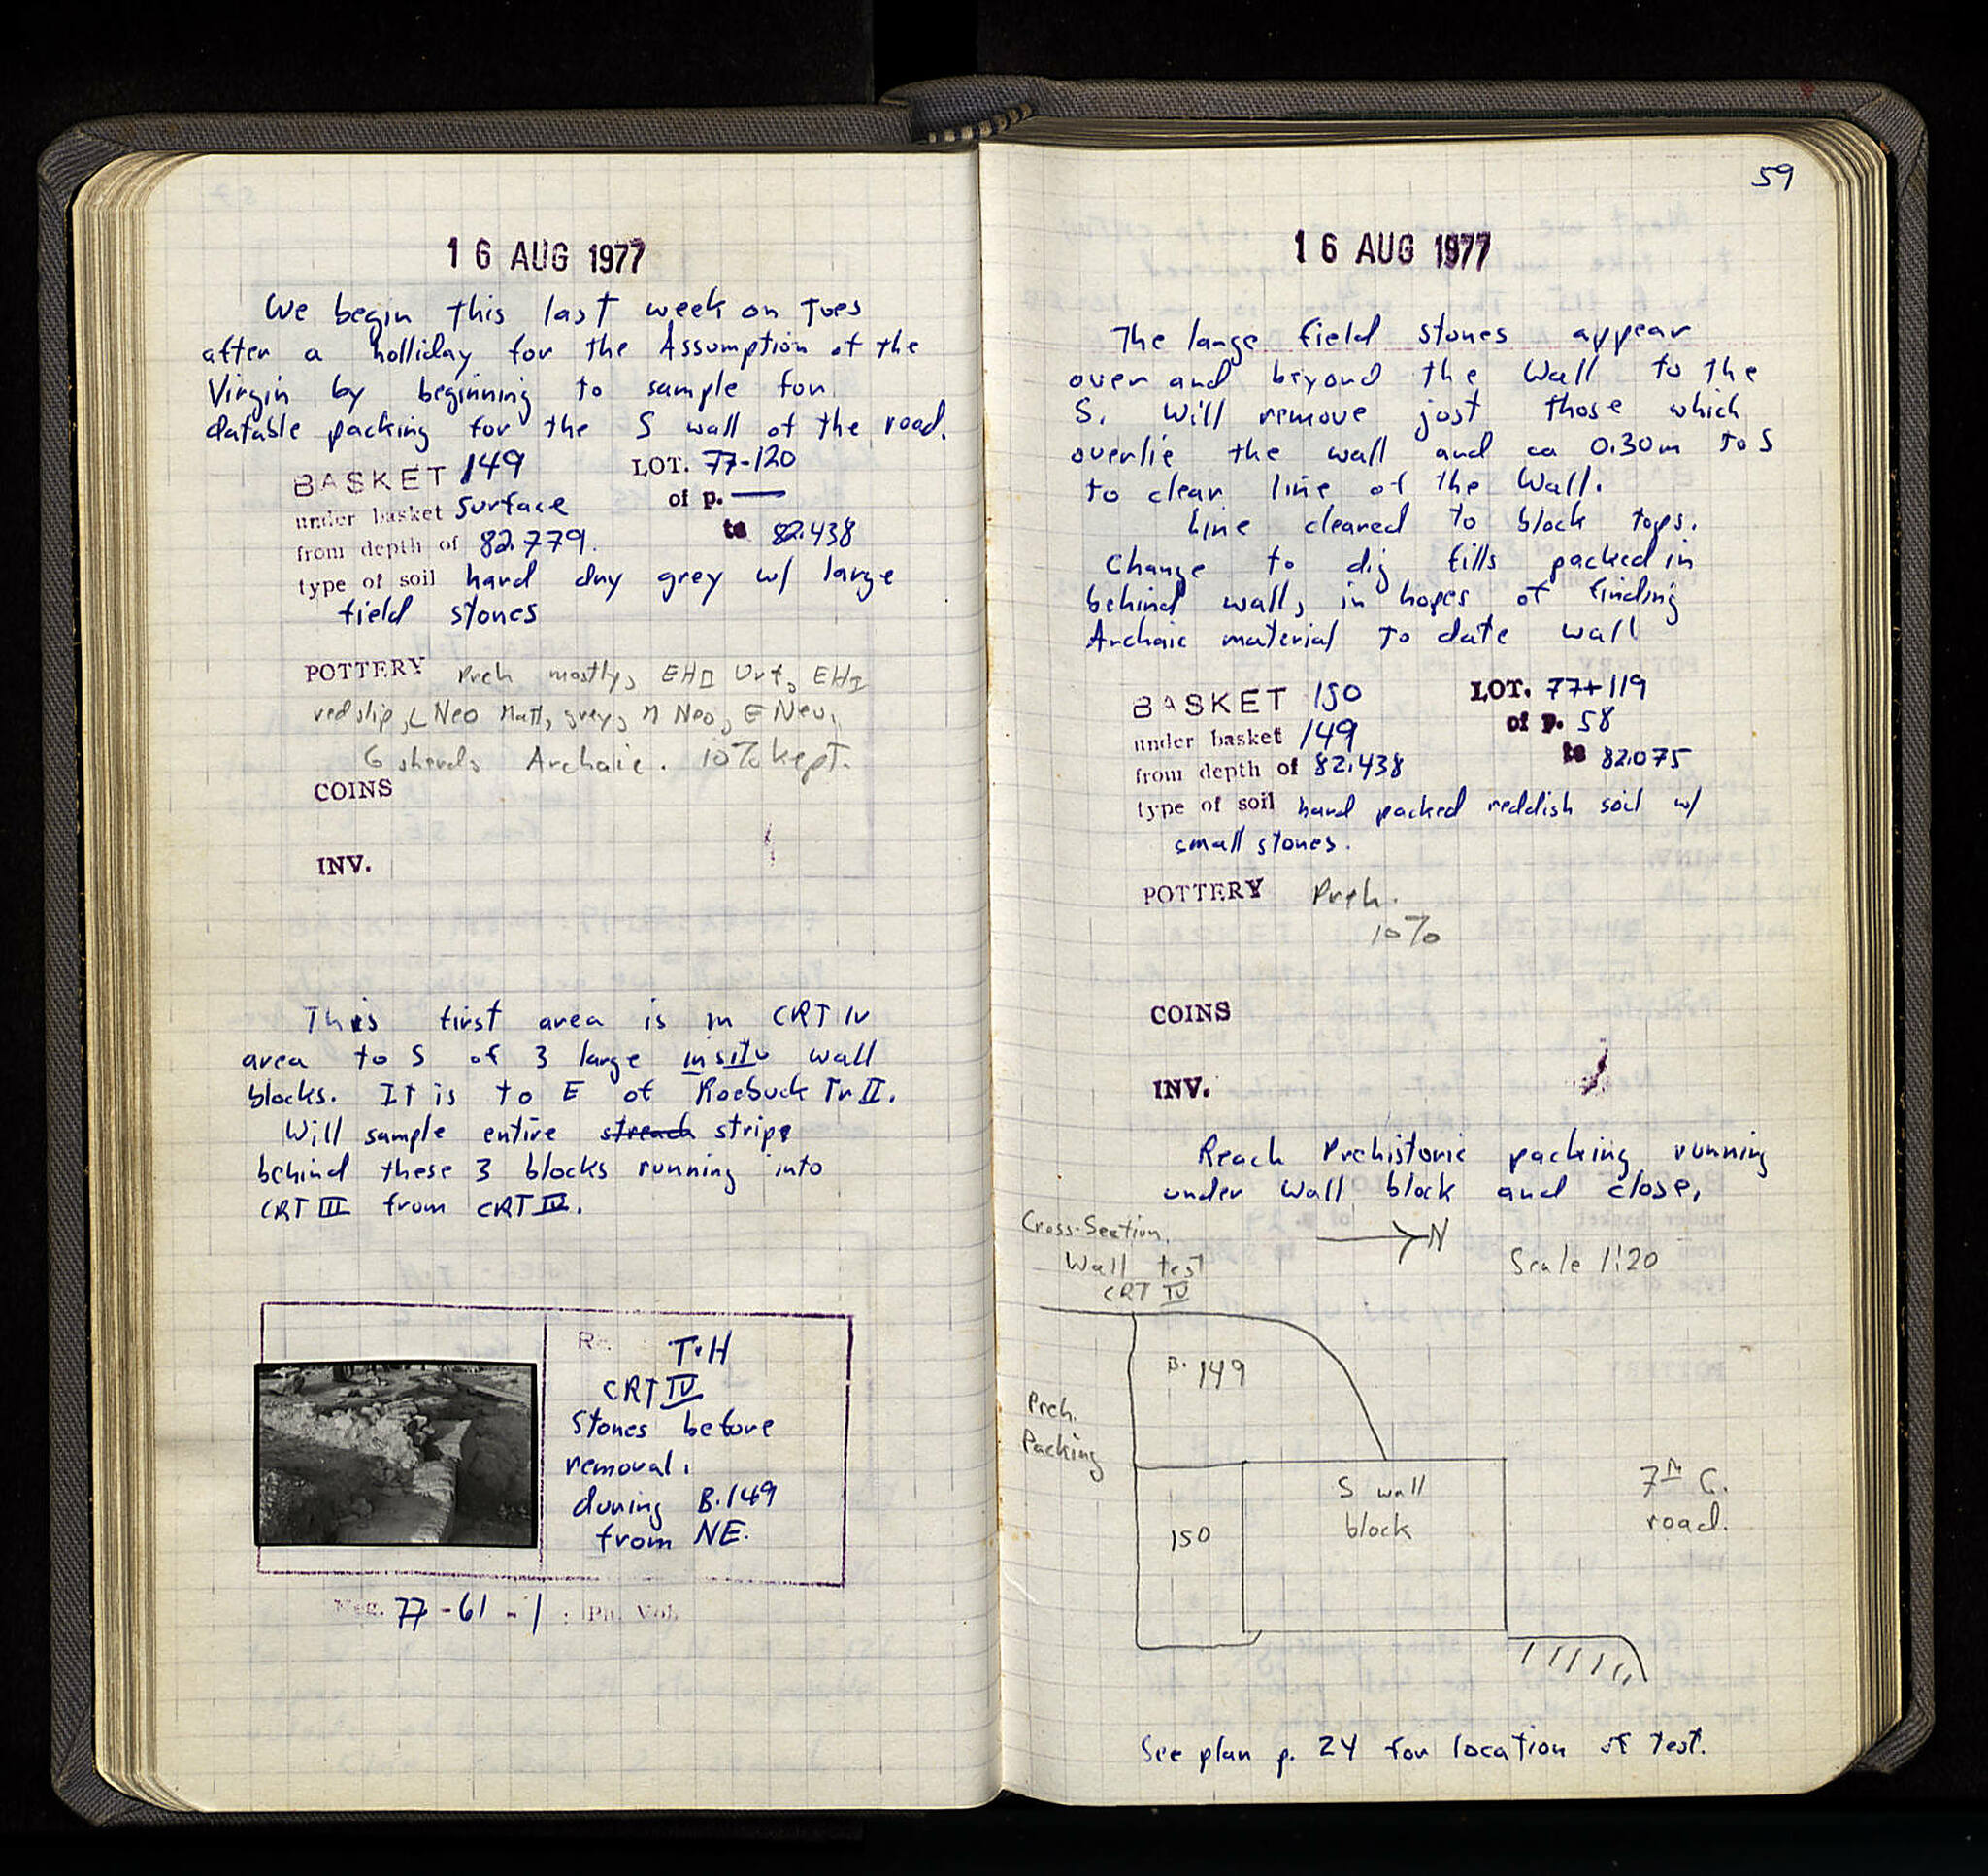 16 AUG 1977
We begin this last week on Tues
after a holliday for the Assumption of the
Virgin by beginning to sample for
datable packing for the S wall of the road.
BASKET 149 LOT. 77-120
under basket surface of p. —
from depth of 82.779. to 82.438
type of soil hard dry grey w/ large
field stones
POTTERY Preh mostly, EH II Urf, EH I
red slip, L Neo Matt, grey, M Neo, E Neo,
6 sherds Archaic. 10% kept.
COINS
INV.
This first area is in CRT IV
area to S of 3 large in situ wall
blocks. It is to E of Roebuck Tr II.
Will sample entire streach strip
behind these 3 blocks running into
CRT III from CRT IV.
T.H
CRT IV
Stones before
removal,
during B.149
from NE.
Neg. 77-61-1 : Ph. Vol.
59
16 AUG 1977
The large field stones appear
over and beyond the Wall to the
S. Will remove just those which
overlie the wall and ca 0.30m to S
to clear line of the Wall.
Line cleared to block tops.
Change to dig fills packed in
behind wall, in hopes of finding
Archaic material to date wall
BASKET 150 LOT. 77-119
under basket 149 of p. 58
from depth of 82.438 to 82.075
type of soil hard packed reddish soil w/
small stones.
POTTERY Preh.
10%
COINS
INV.
Reach Prehistoric packing running
under wall block and close,
Cross-Section. N
Wall test Scale 1:20
CRT IV
B. 149
Preh.
Packing
S wall
block
150
7th C.
road.
See plan p. 24 for location of test.